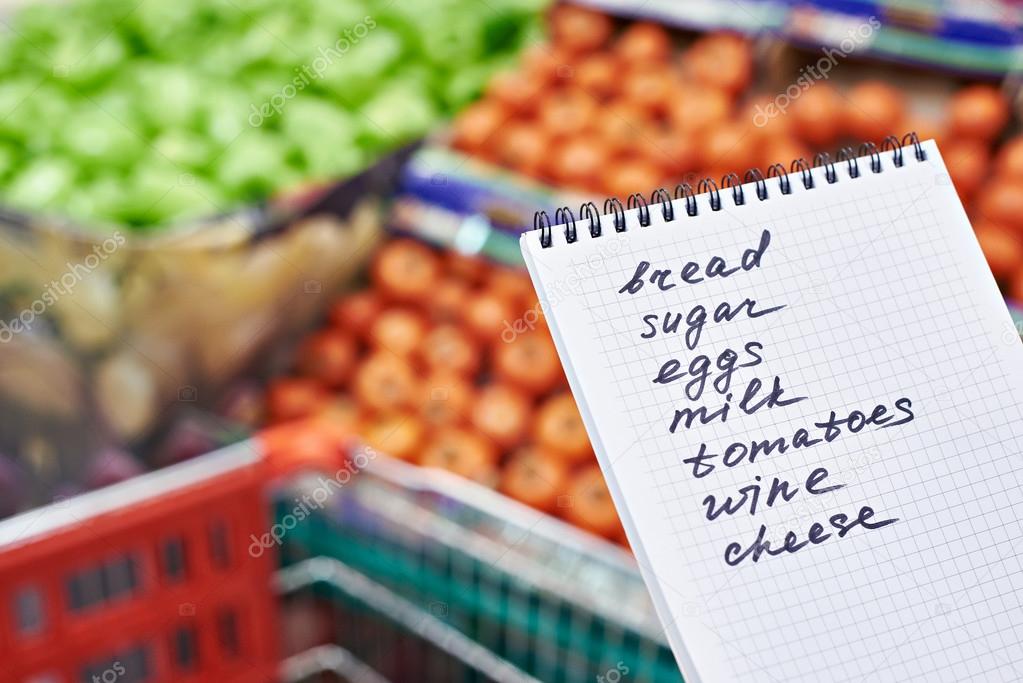 bread
sugar
eggs
milk
tomatoes
wine
cheese
depositphotos
depositphotos
depositphotos
depositphotos
depositphotos
depositphotos